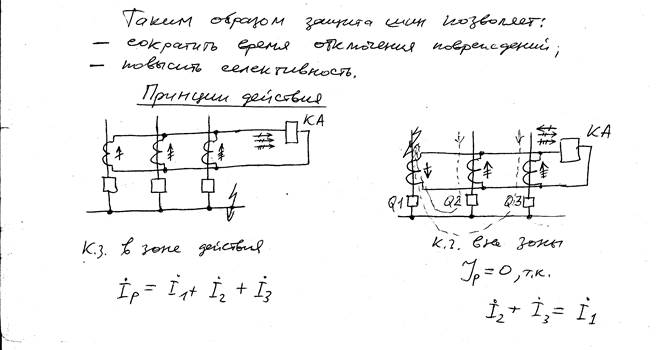 Таким образом защита шин позволяет:
– сократить время отключения повреждений;
– повысить селективность.
Принцип действия
КА
КА
Q1 Q2 Q3
К.З. в зоне действия
İp = İ1 + İ2 + İ3
К.З. вне зоны
Jp = 0, т.к.
İ2 + İ3 = İ1